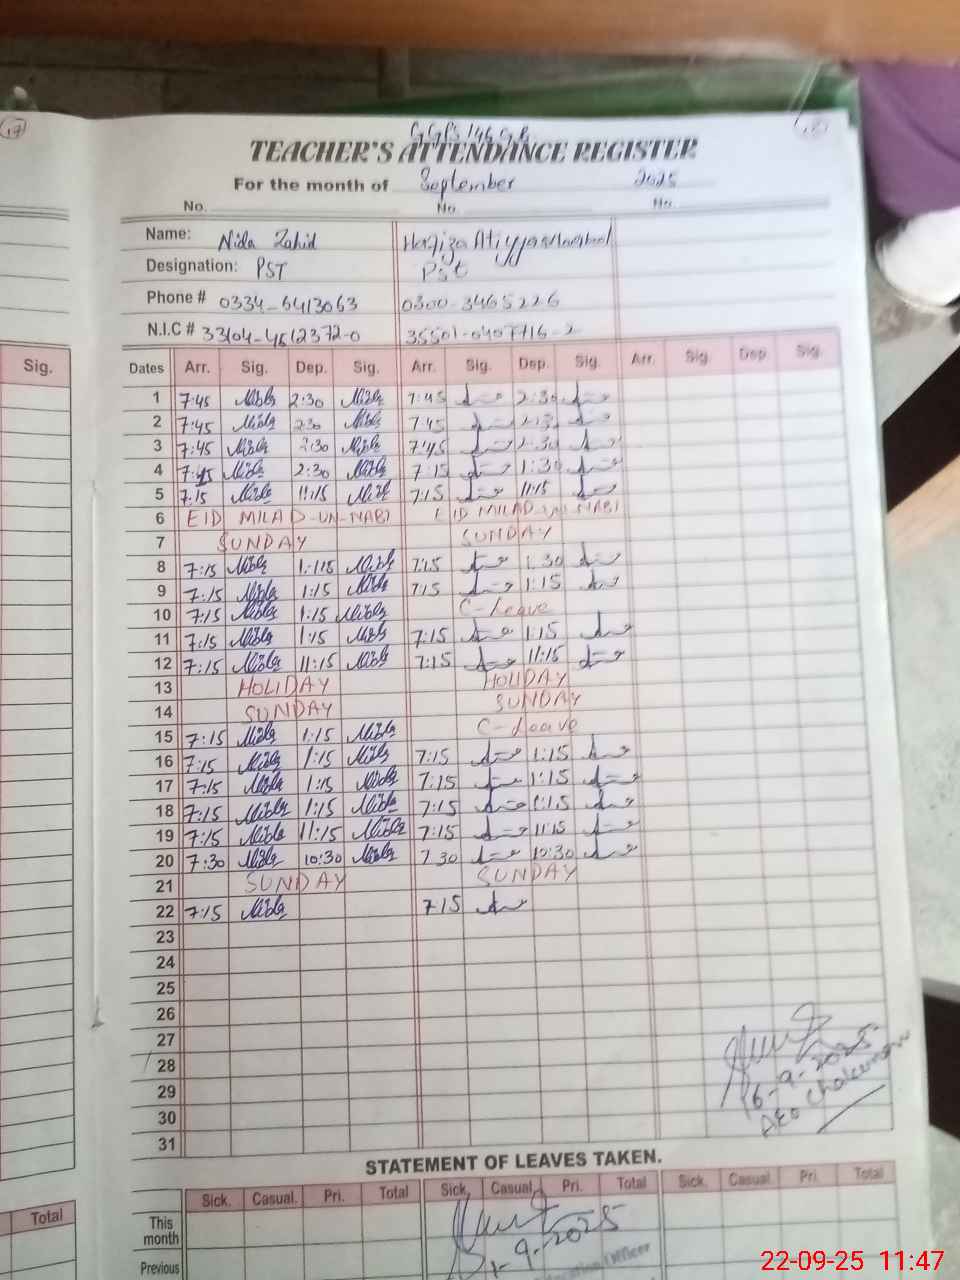 17
GGPS 146 GB
TEACHER'S ATTENDANCE REGISTER
For the month of September 2025
No. No. No.
Name: Nida Zahid Hafiza Atiyya
Designation: PST Pst
Phone # 0334-6413063 0300-3465226
N.I.C # 33104-4512372-0 35501-0407716-2
Sig. Dates Arr. Sig. Dep. Sig. Arr. Sig. Dep. Sig. Arr. Sig. Dep. Sig.
1 7:45 Nida 2:30 Nida 7:45 2:30
2 7:45 Nida 2:30 Nida 7:45 2:30
3 7:45 Nida 2:30 Nida 7:45 2:30
4 7:45 Nida 2:30 Nida 7:15 1:30
5 7:15 Nida 11:15 Nida 7:15 11:15
6 EID MILAD-UN-NABI EID MILAD-UN-NABI
7 SUNDAY SUNDAY
8 7:15 Nida 1:115 Nida 7:15 1:30
9 7:15 Nida 1:15 Nida 7:15 1:15
10 7:15 Nida 1:15 Nida C-Leave
11 7:15 Nida 1:15 Nida 7:15 1:15
12 7:15 Nida 11:15 Nida 7:15 11:15
13 HOLIDAY HOLIDAY
14 SUNDAY SUNDAY
15 7:15 Nida 1:15 Nida C-Leave
16 7:15 Nida 1:15 Nida 7:15 1:15
17 7:15 Nida 1:15 Nida 7:15 1:15
18 7:15 Nida 1:15 Nida 7:15 1:15
19 7:15 Nida 11:15 Nida 7:15 11:15
20 7:30 Nida 10:30 Nida 7 30 10:30
21 SUNDAY SUNDAY
22 7:15 Nida 7:15
23
24
25
26
27
28
29
30
31
16-9-2025
AEO
STATEMENT OF LEAVES TAKEN.
Sick. Casual. Pri. Total Sick. Casual. Pri. Total Sick. Casual. Pri. Total
Total This month
9-2025
Previous
Education Officer
22-09-25 11:47